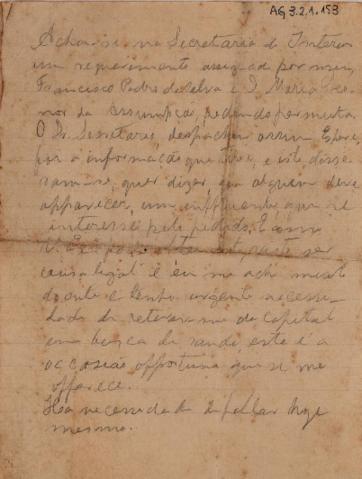 AG3.2.1.153
Acha-se na Secretaria do Interior
um requerimento assignado por mim,
Francisco Pedro da Silva e D. Maria
da Assumpção, pedindo permuta
O Sr. Secretario, despachou assim
por a informação que tive, e este disse
ram-me, quer dizer, que alguem deve
apparecer, um influente, que se
interesse pelo pedido. E com
ser
causa legal e eu me acho muito
doente e tenho urgente necessi
dade de retirar-me da capital
em busca de saude este é a
occasião opportuna que se me
offerece.
Ha necessidade hoje
mesmo.